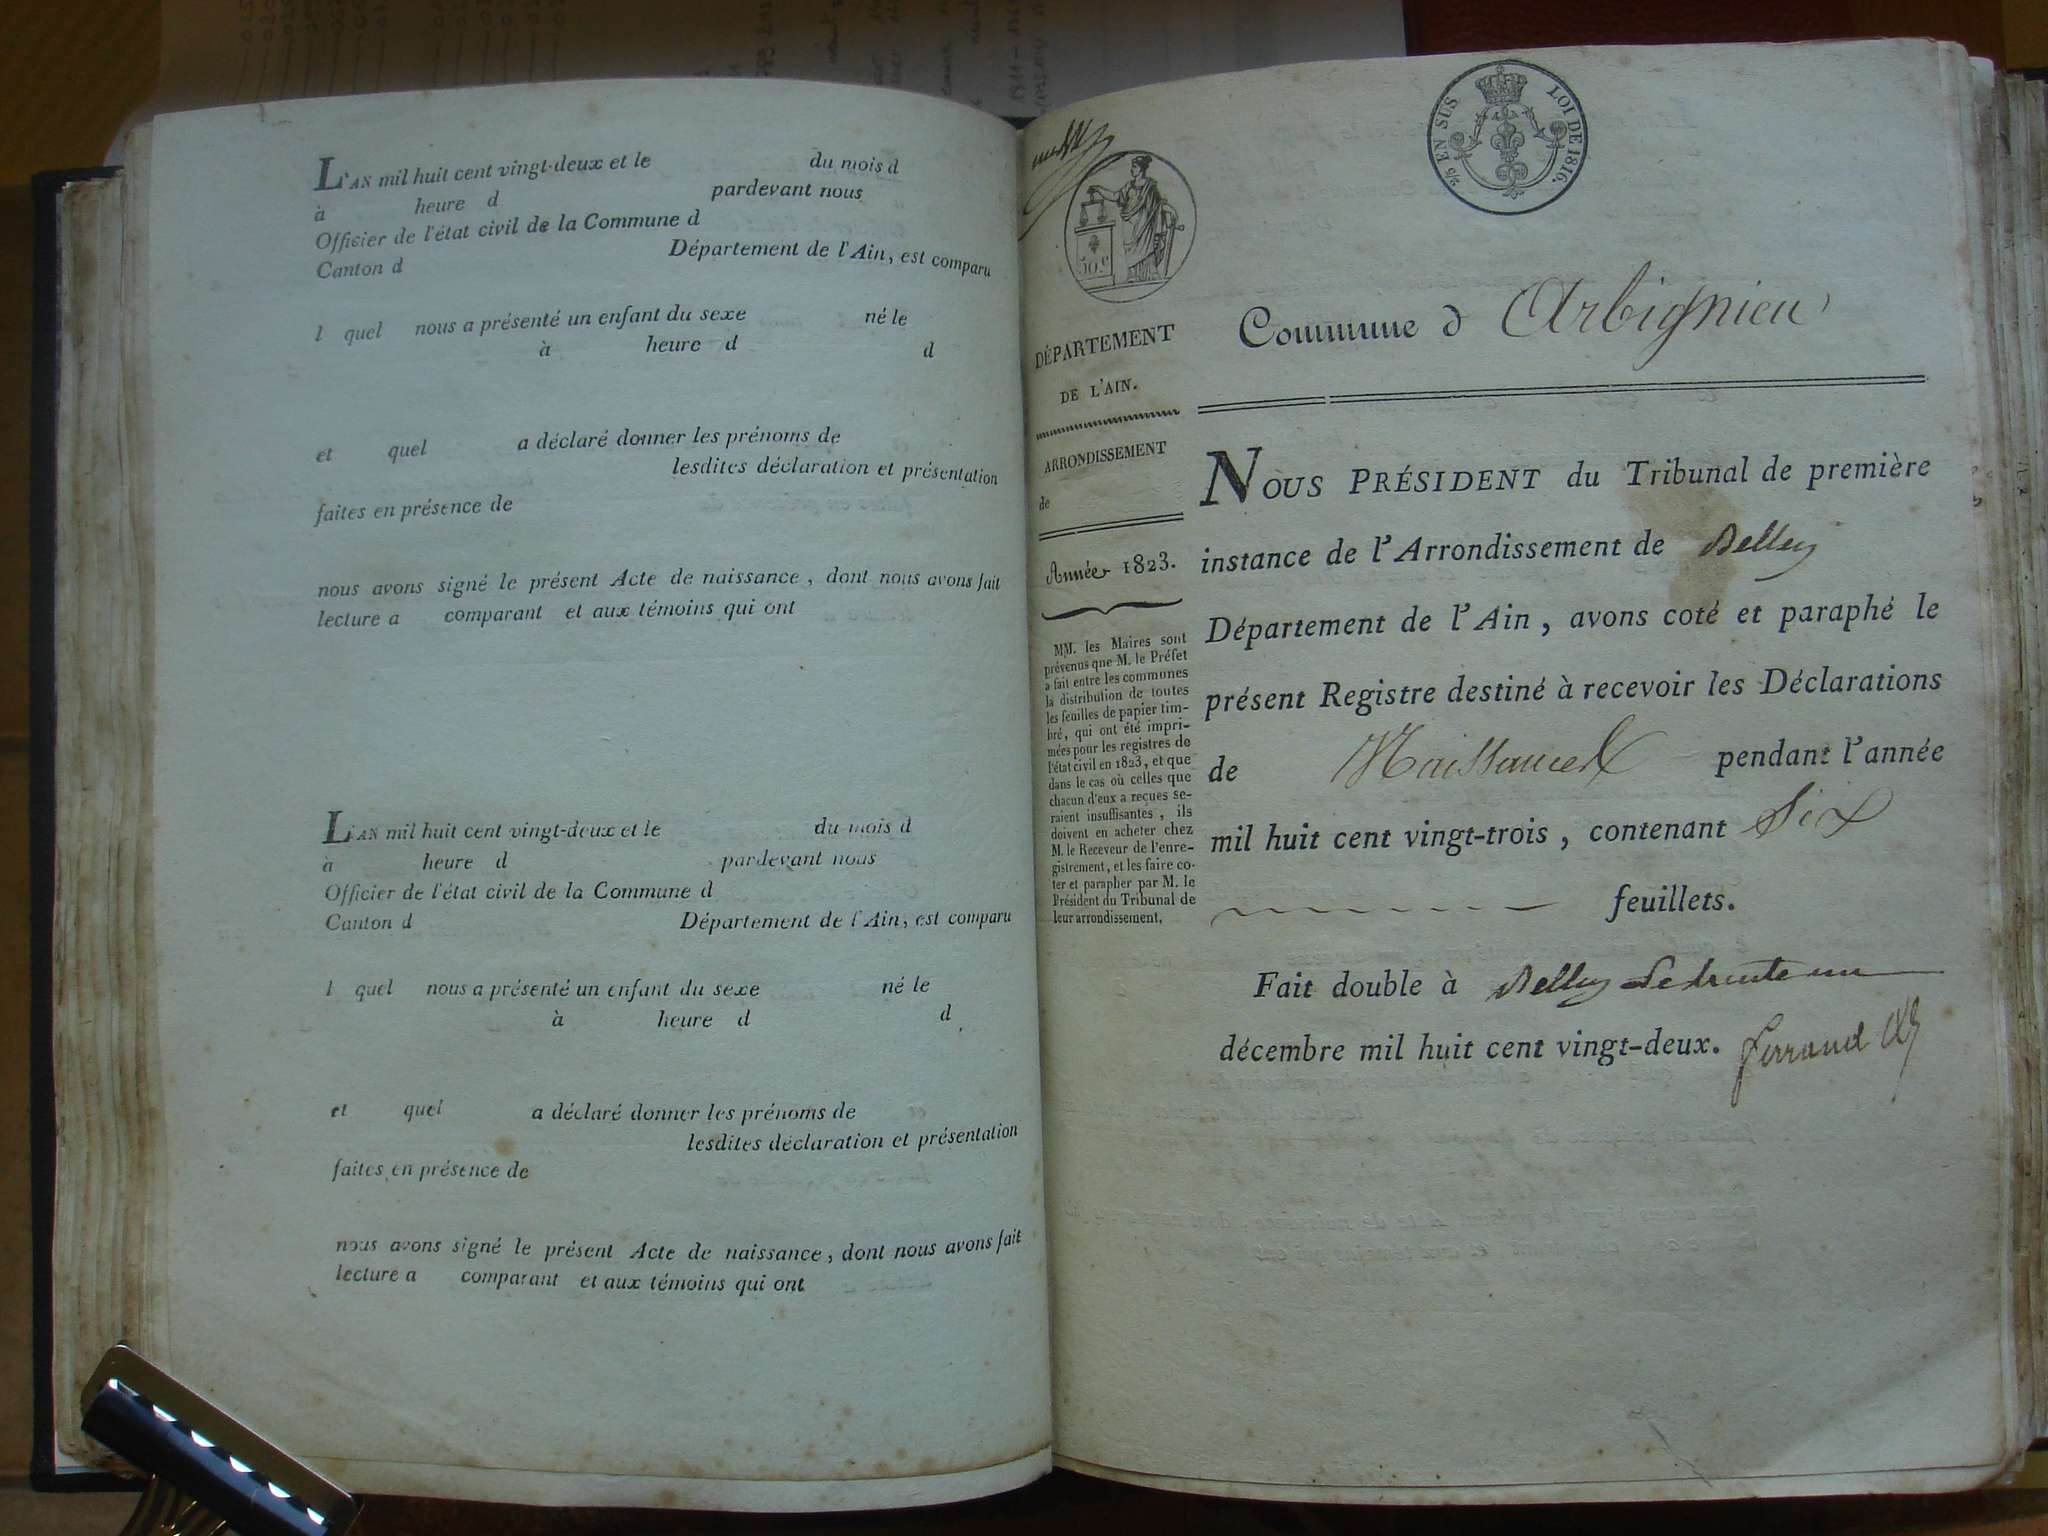 L'AN mil huit cent vingt-deux et le du mois d
à heure d pardevant nous
Officier de l'état civil de la Commune d
Canton d Département de l'Ain, est comparu
l quel nous a présenté un enfant du sexe né le
à heure d d
et quel a déclaré donner les prénoms de
lesdites déclaration et présentation
faites en présence de
nous avons signé le présent Acte de naissance, dont nous avons fait
lecture a comparant et aux témoins qui ont
L'AN mil huit cent vingt-deux et le du mois d
à heure d pardevant nous
Officier de l'état civil de la Commune d
Canton d Département de l'Ain, est comparu
l quel nous a présenté un enfant du sexe né le
à heure d d
et quel a déclaré donner les prénoms de
lesdites déclaration et présentation
faites en présence de
nous avons signé le présent Acte de naissance, dont nous avons fait
lecture a comparant et aux témoins qui ont
EN SUS LOI DE 1816.
50 c
DÉPARTEMENT
DE L'AIN.
ARRONDISSEMENT
de
Année 1823.
MM. les Maires sont
prévenus que M. le Préfet
a fait entre les communes
la distribution de toutes
les feuilles de papier tim-
bré, qui ont été impri-
mées pour les registres de
l'état civil en 1823, et que
dans le cas où celles que
chacun d'eux a reçues se-
raient insuffisantes, ils
doivent en acheter chez
M. le Receveur de l'enre-
gistrement, et les faire co-
ter et parapher par M. le
Président du Tribunal de
leur arrondissement.
Commune d Arbignieu
NOUS PRÉSIDENT du Tribunal de première
instance de l'Arrondissement de Belley
Département de l'Ain, avons coté et paraphé le
présent Registre destiné à recevoir les Déclarations
de Naissances pendant l'année
mil huit cent vingt-trois, contenant Six
feuillets.
Fait double à Belley Le trente un
décembre mil huit cent vingt-deux. Ferrand